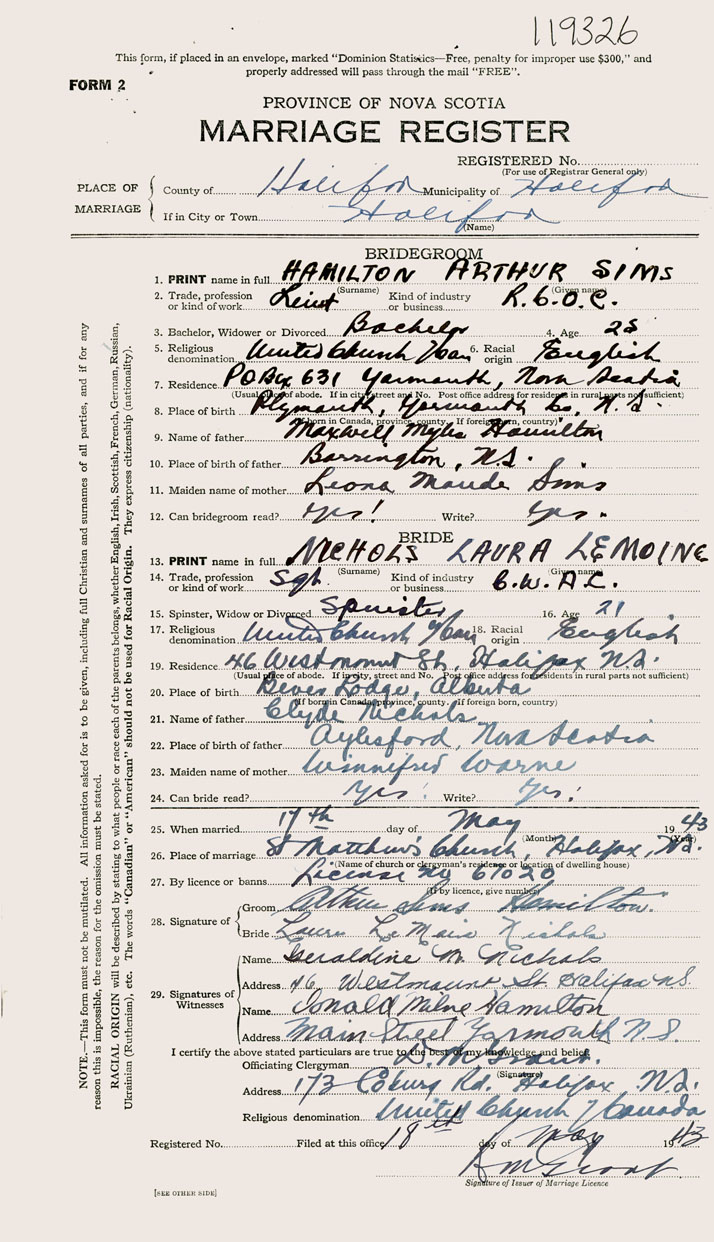 119326
This form, if placed in an envelope, marked "Dominion Statistics—Free, penalty for improper use $300," and
properly addressed will pass through the mail "FREE".
FORM 2
PROVINCE OF NOVA SCOTIA
MARRIAGE REGISTER
REGISTERED No.
(For use of Registrar General only)
PLACE OF MARRIAGE
County of Halifax Municipality of Halifax
If in City or Town Halifax
(Name)
BRIDEGROOM
1. PRINT name in full HAMILTON ARTHUR SIMS
(Surname) (Given name)
2. Trade, profession or kind of work Lieut Kind of industry or business R.C.O.C.
3. Bachelor, Widower or Divorced Bachelor 4. Age 25
5. Religious denomination United Church Can 6. Racial origin English
7. Residence PO Box 631 Yarmouth, Nova Scotia
(Usual place of abode. If in city street and No. Post office address for residents in rural parts not sufficient)
8. Place of birth Plymouth, Yarmouth Co, N.S.
(If born in Canada, province, county. If foreign born, country)
9. Name of father Maxwell Myles Hamilton
10. Place of birth of father Barrington, N.S.
11. Maiden name of mother Leona Maude Sims
12. Can bridegroom read? Yes! Write? Yes.
BRIDE
13. PRINT name in full NICHOLS LAURA LEMOINE
(Surname) (Given name)
14. Trade, profession or kind of work Sgt. Kind of industry or business C.W.A.C.
15. Spinster, Widow or Divorced Spinster 16. Age 21
17. Religious denomination United Church Can 18. Racial origin English
19. Residence 46 Westmount St, Halifax N.S.
(Usual place of abode. If in city, street and No. Post office address for residents in rural parts not sufficient)
20. Place of birth Lodge, Alberta
(If born in Canada, province, county. If foreign born, country)
21. Name of father Clyde Nichols
22. Place of birth of father Aylesford, Nova Scotia
23. Maiden name of mother Winnifred Warne
24. Can bride read? Yes! Write? Yes!
25. When married 17th day of May 1943
(Month) (Year)
26. Place of marriage St Matthew's Church, Halifax, N.S.
(Name of church or clergyman's residence or location of dwelling house)
27. By licence or banns License No 67020
(If by licence, give number)
28. Signature of
Groom Arthur Sims Hamilton.
Bride Laura Nichols
29. Signatures of Witnesses
Name Geraldine M. Nichols
Address 46 Westmount St. Halifax N.S.
Name Donald Milne Hamilton
Address Main Street Yarmouth N.S.
I certify the above stated particulars are true to the best of my knowledge and belief.
Officiating Clergyman
(Signature)
Address 173 Coburg Rd. Halifax, N.S.
Religious denomination United Church of Canada
Registered No. Filed at this office 18th day of May 1943
Signature of Issuer of Marriage Licence
[SEE OTHER SIDE]
NOTE.—This form must not be mutilated. All information asked for is to be given, including full Christian and surnames of all parties, and if for any
reason this is impossible, the reason for the omission must be stated.
RACIAL ORIGIN will be described by stating to what people or race each of the parents belongs, whether English, Irish, Scottish, French, German, Russian,
Ukrainian (Ruthenian), etc. The words "Canadian" or "American" should not be used for Racial Origin. They express citizenship (nationality).